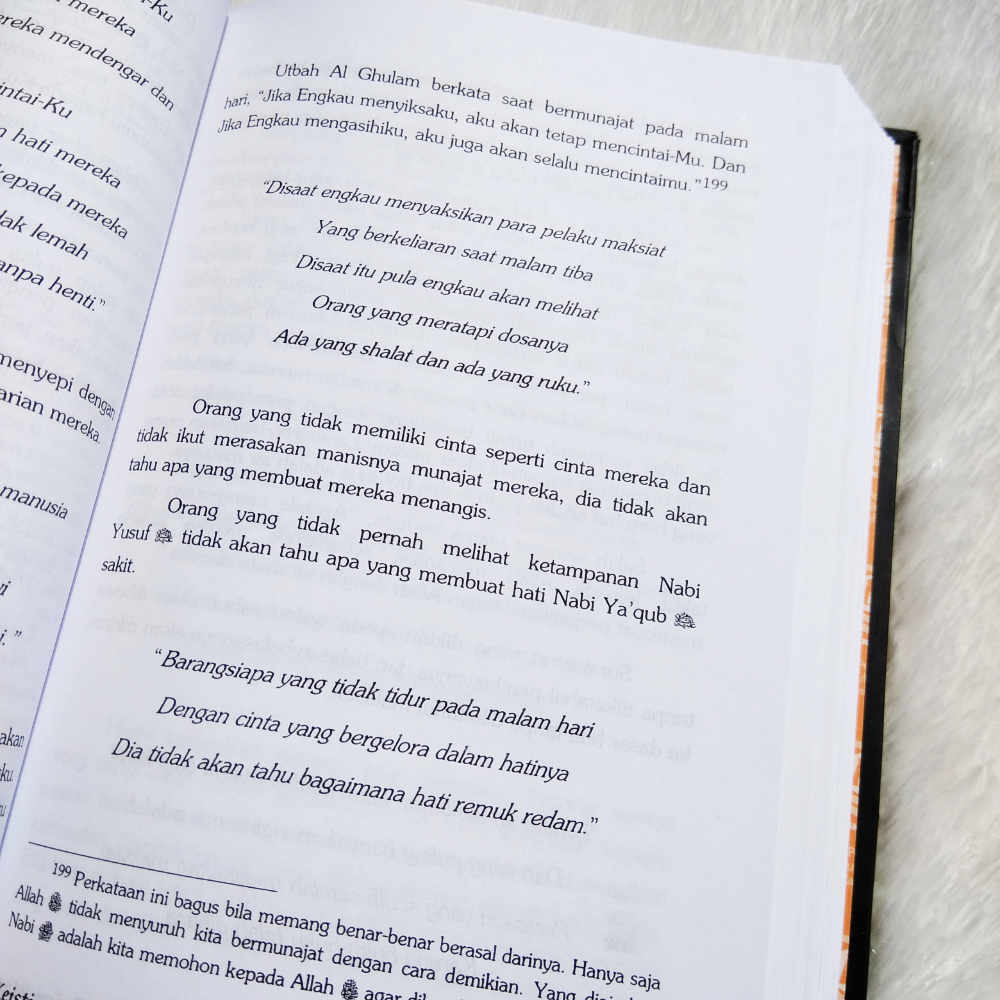 mereka
mendengar dan
hati mereka
kepada mereka
lemah
henti."
menyepi dengan
mereka.
manusia
Utbah Al Ghulam berkata saat bermunajat pada malam
hari, "Jika Engkau menyiksaku, aku akan tetap mencintai-Mu. Dan
Jika Engkau mengasihiku, aku juga akan selalu mencintaimu."199
"Disaat engkau menyaksikan para pelaku maksiat
Yang berkeliaran saat malam tiba
Disaat itu pula engkau akan melihat
Orang yang meratapi dosanya
Ada yang shalat dan ada yang ruku."
Orang yang tidak memiliki cinta seperti cinta mereka dan
tidak ikut merasakan manisnya munajat mereka, dia tidak akan
tahu apa yang membuat mereka menangis.
Orang yang tidak pernah melihat ketampanan Nabi
Yusuf tidak akan tahu apa yang membuat hati Nabi Ya'qub
sakit.
"Barangsiapa yang tidak tidur pada malam hari
Dengan cinta yang bergelora dalam hatinya
Dia tidak akan tahu bagaimana hati remuk redam."
199 Perkataan ini bagus bila memang benar-benar berasal darinya. Hanya saja
Allah tidak menyuruh kita bermunajat dengan cara demikian. Yang
Nabi adalah kita memohon kepada Allah agar